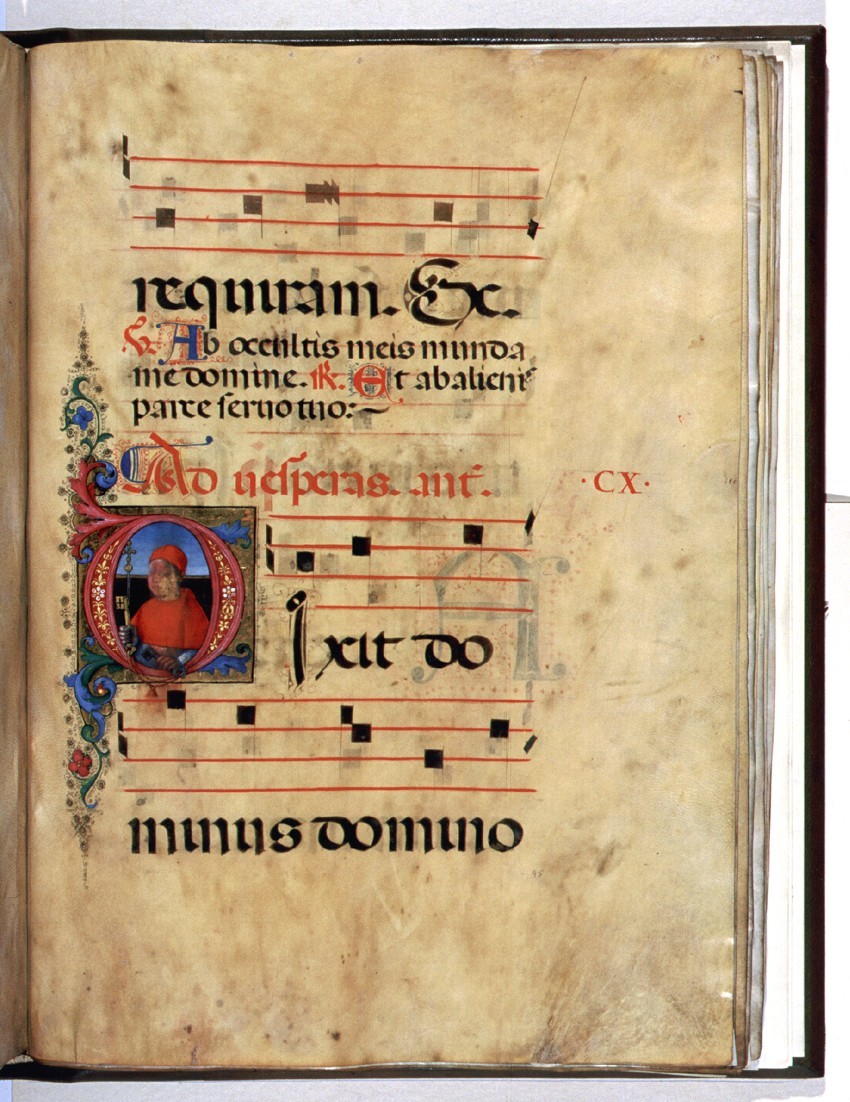 requiram. Ex.
℣. Ab occultis meis munda
me domine. ℟. Et ab alienis
parce servo tuo:~
Ad vesperas. ant.
·CX·
Dixit do
minus domino